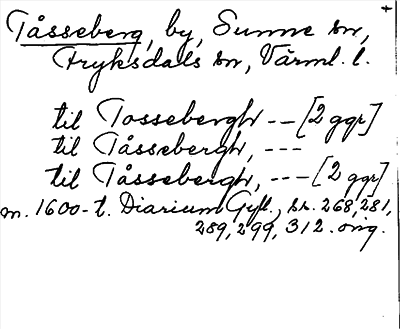 Tåsseberg, by, Sunne sn,
Fryksdals sn, Värml. l.
til Tossebergh -- [2 ggr]
til Tåssebergh, ---
til Tåssebergh, --- [2 ggr]
m. 1600-t. Diarium Gyll., s. 268, 281,
289, 299, 312. orig.